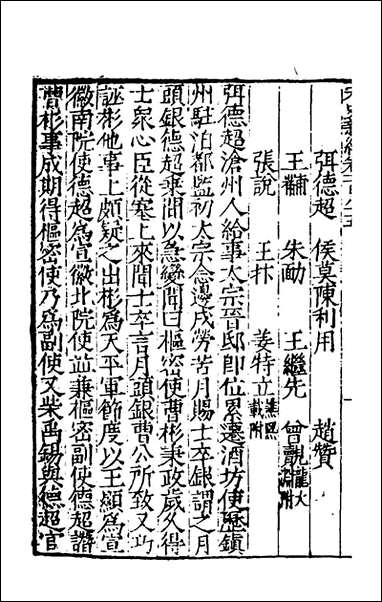 宋史新編卷一百八十五
弭德超　侯莫陳利用　趙贊
王黼　朱勔　王繼先　曾覿龍大淵附
張說　王抃　姜特立譙熙載附
弭德超滄州人給事太宗晉邸即位累遷酒坊使歷鎮
州駐泊都監初太宗念邊戍勞苦月賜士卒銀謂之月
頭銀德超乘間以急變聞曰樞密使曹彬秉政歲久得
士眾心臣從塞上來聞士卒言月頭銀曹公所致又巧
誣彬他事上頗疑之出彬為天平軍節度以王顯為宣
徽南院使德超為宣徽北院使並兼樞密副使德超譖
曹彬事成期得樞密使乃為副使又柴禹錫與德超官